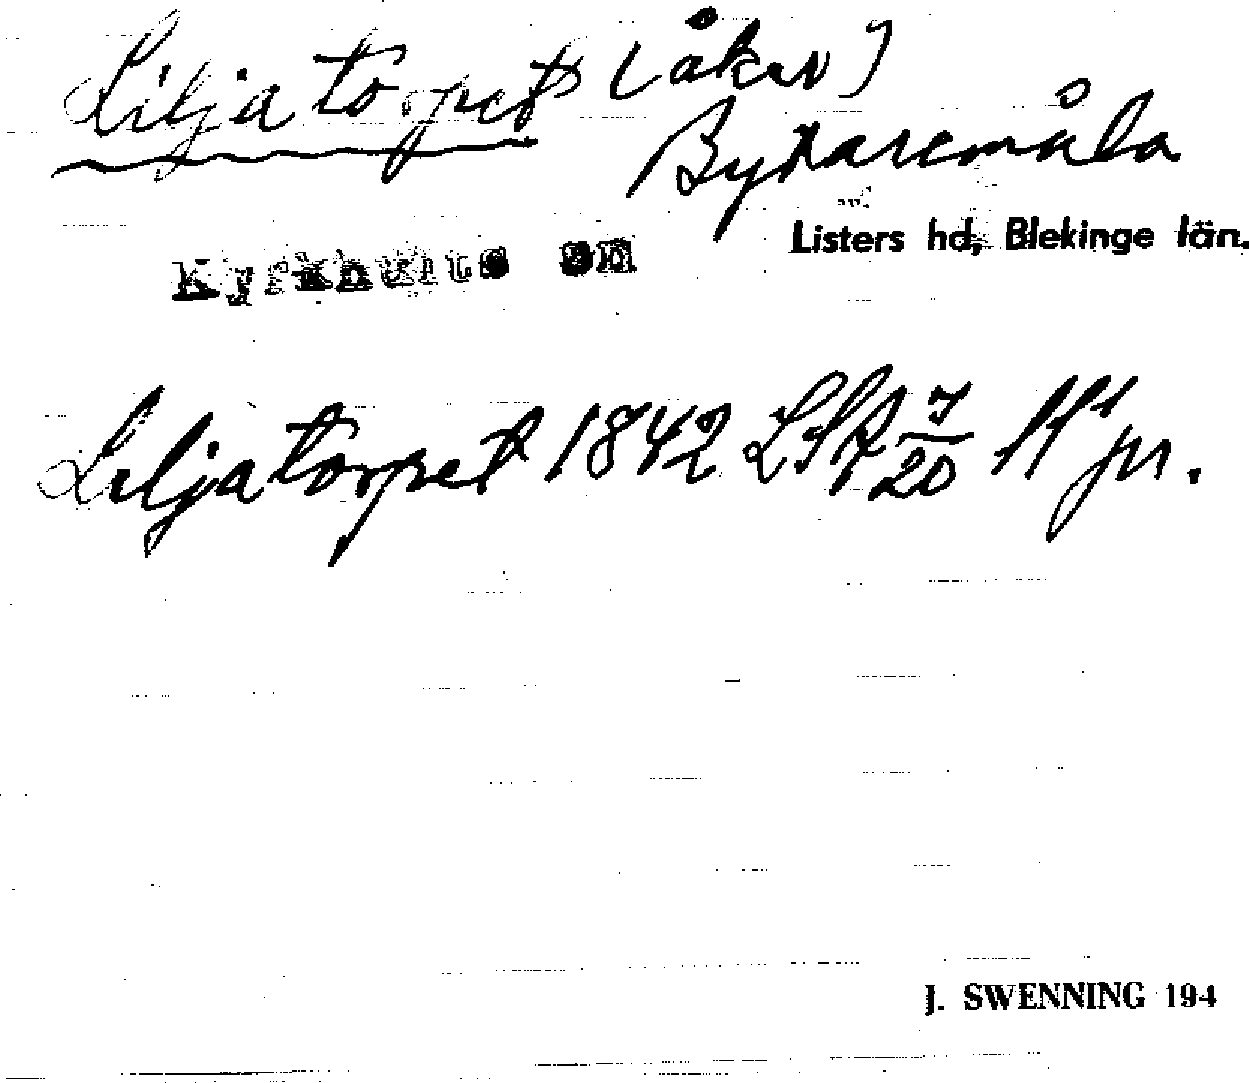 Liljatorpet (åker)
Bykaremåla
Listers hd, Blekinge län.
Kyrkhults sn
Liljatorpet 1842 LSA 7/20 11 pr.
J. SWENNING 194